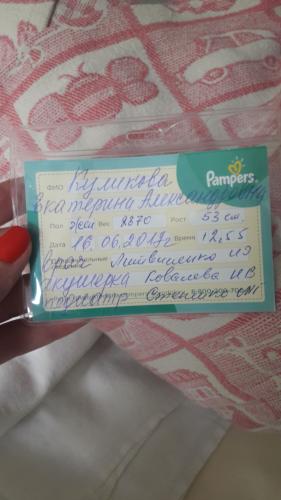 Pampers.
ФИО Куликова
Екатерина Александровна
Пол жен Вес 2870 Рост 53 см
Дата 16.06.2017г Время 12.55
врач Литвиненко
акушерка Ковалева И В
педиатр